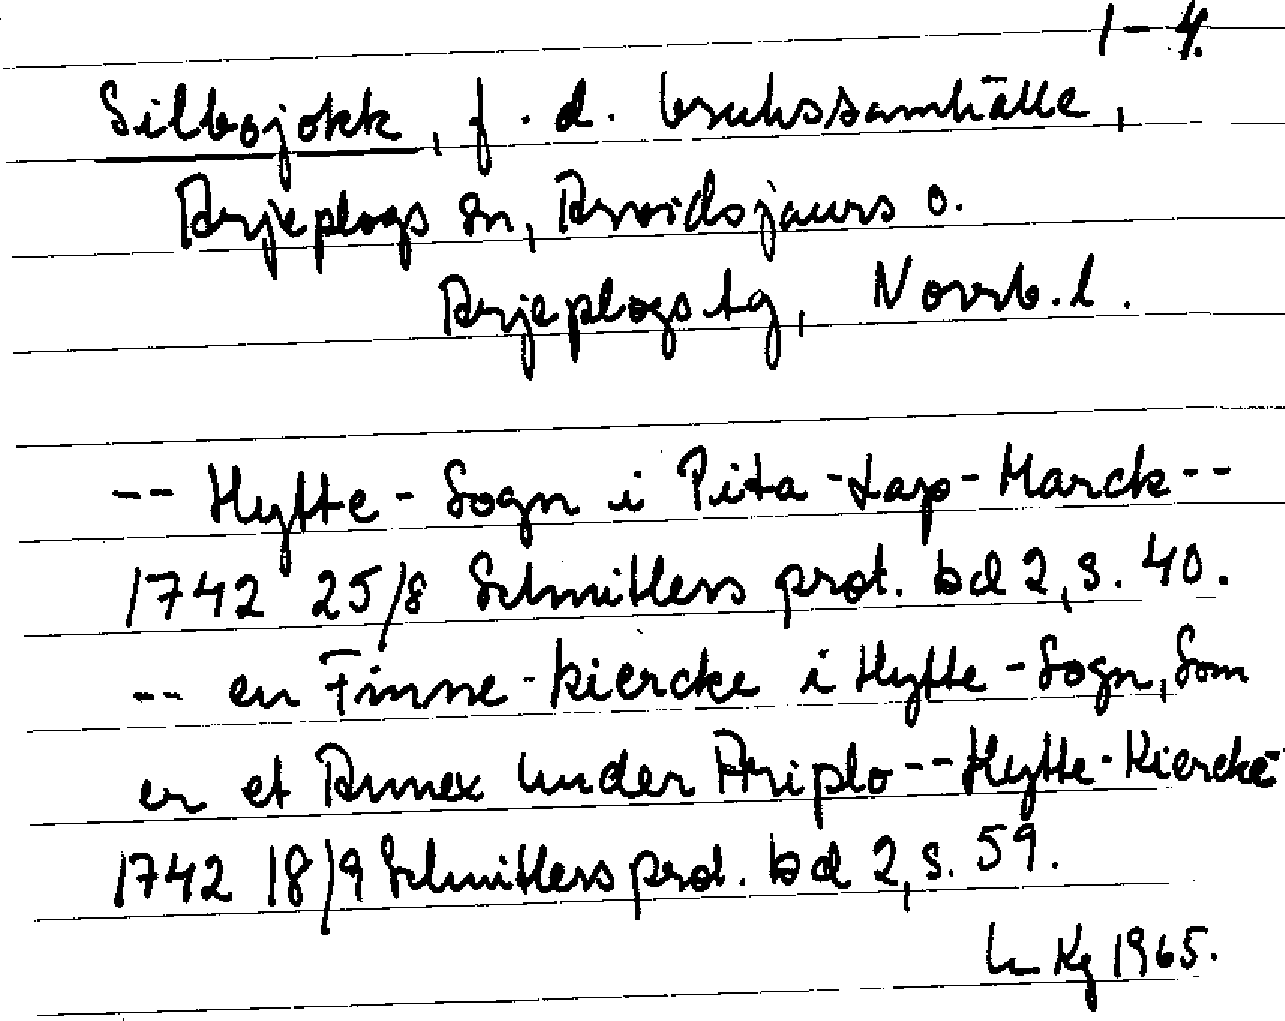 1-4.
Silbojokk, f.d. brukssamhälle,
Arjeplogs sn, Arvidsjaurs o.
Arjeplogs tg, Norrb.l.
-- Hytte-Sogn i Pita-Lap-Marck--
1742 25/8 Schnitlers prot. bd 2, s. 40.
-- en Finne-kiercke i Hytte-Sogn, Som
er et Annex under Ariplo--Hytte-Kiercke
1742 18/9 Schnitlers prot. bd 2, s. 59.
1965.